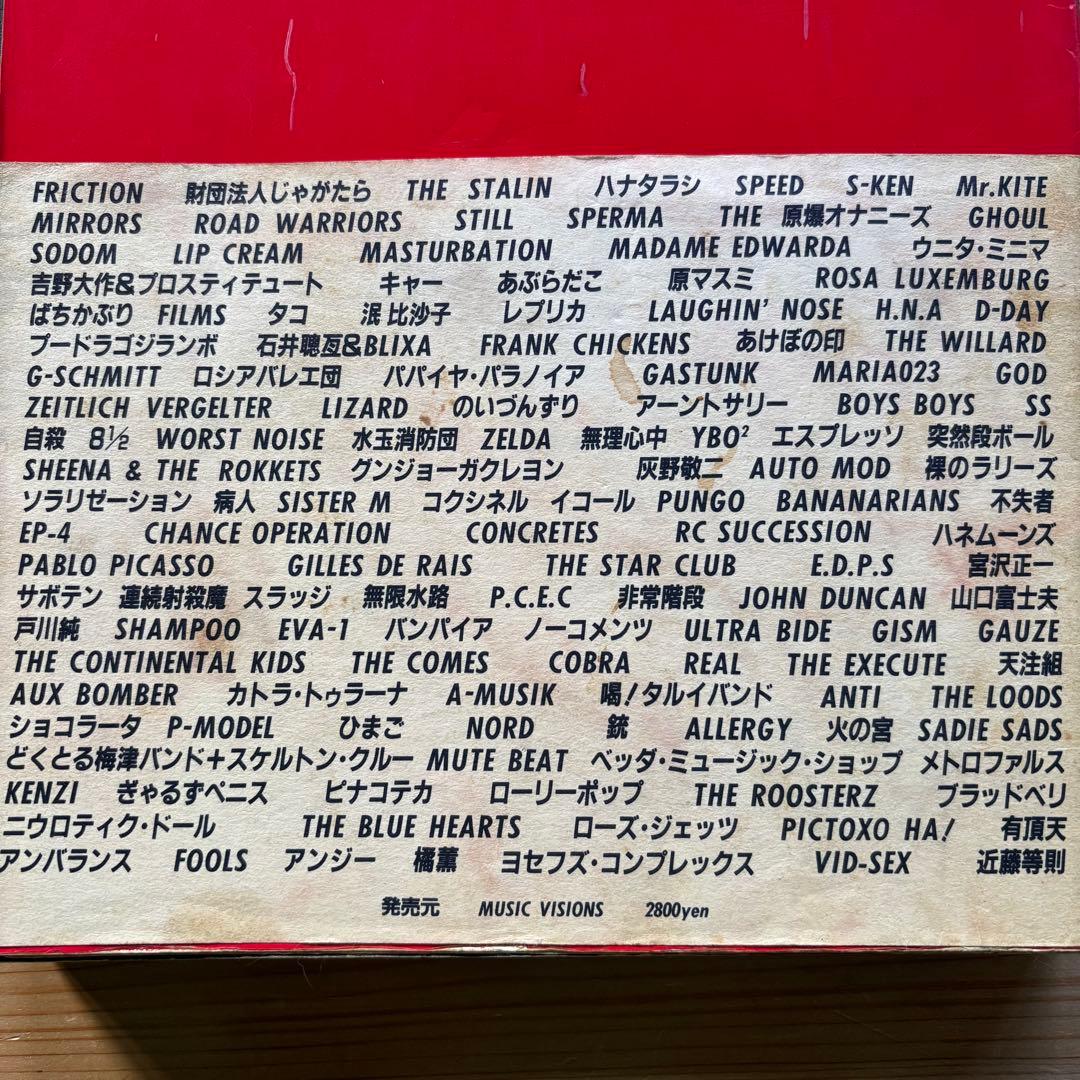 FRICTION 財団法人じゃがたら THE STALIN ハナタラシ SPEED S-KEN Mr.KITE
MIRRORS ROAD WARRIORS STILL SPERMA THE 原爆オナニーズ GHOUL
SODOM LIP CREAM MASTURBATION MADAME EDWARDA ウニタ・ミニマ
吉野大作&プロスティテュート キャー あぶらだこ 原マスミ ROSA LUXEMBURG
ばちかぶり FILMS タコ 泯比沙子 レプリカ LAUGHIN' NOSE H.N.A D-DAY
プードラゴジランボ 石井聰亙&BLIXA FRANK CHICKENS あけぼの印 THE WILLARD
G-SCHMITT ロシアバレエ団 パパイヤ・パラノイア GASTUNK MARIA023 GOD
ZEITLICH VERGELTER LIZARD のいづんずり アーントサリー BOYS BOYS SS
自殺 8½ WORST NOISE 水玉消防団 ZELDA 無理心中 YBO² エスプレッソ 突然段ボール
SHEENA & THE ROKKETS グンジョーガクレヨン 灰野敬二 AUTO MOD 裸のラリーズ
ソラリゼーション 病人 SISTER M コクシネル イコール PUNGO BANANARIANS 不失者
EP-4 CHANCE OPERATION CONCRETES RC SUCCESSION ハネムーンズ
PABLO PICASSO GILLES DE RAIS THE STAR CLUB E.D.P.S 宮沢正一
サボテン 連続射殺魔 スラッジ 無限水路 P.C.E.C 非常階段 JOHN DUNCAN 山口富士夫
戸川純 SHAMPOO EVA-1 バンパイア ノーコメンツ ULTRA BIDE GISM GAUZE
THE CONTINENTAL KIDS THE COMES COBRA REAL THE EXECUTE 天注組
AUX BOMBER カトラ・トゥラーナ A-MUSIK 喝！タルイバンド ANTI THE LOODS
ショコラータ P-MODEL ひまご NORD 銃 ALLERGY 火の宮 SADIE SADS
どくとる梅津バンド+スケルトン・クルー MUTE BEAT ベッダ・ミュージック・ショップ メトロファルス
KENZI ぎゃるずペニス ピナコテカ ローリーポップ THE ROOSTERZ ブラッドベリ
ニウロティク・ドール THE BLUE HEARTS ローズ・ジェッツ PICTOXO HA! 有頂天
アンバランス FOOLS アンジー 橘薫 ヨセフズ・コンプレックス VID-SEX 近藤等則
発売元 MUSIC VISIONS 2800yen